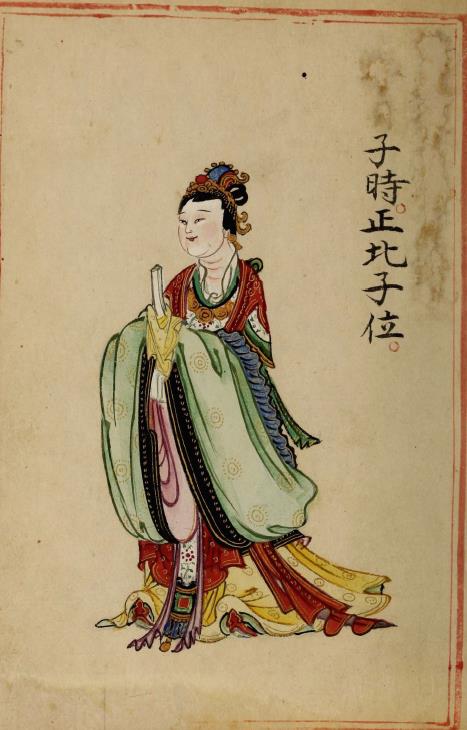 子時。正北子位。